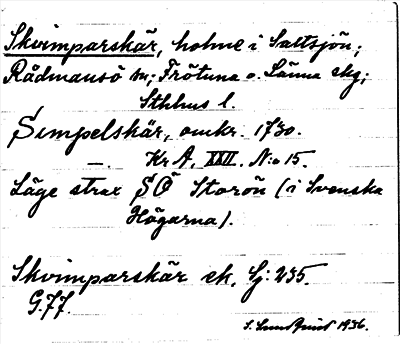 Skvimparskär, holme i Saltsjön;
Rådmansö sn; Frötuna o. Länna skg;
Sthlms l.
Simpelskär, omkr. 1730.
— . Kr A. XXII. N:o 15.
Läge strax SÖ Storön (i Svenska
Högarna).
Skvimparskär ek. Bj: 235.
G.77.
S. Lundqvist 1936.